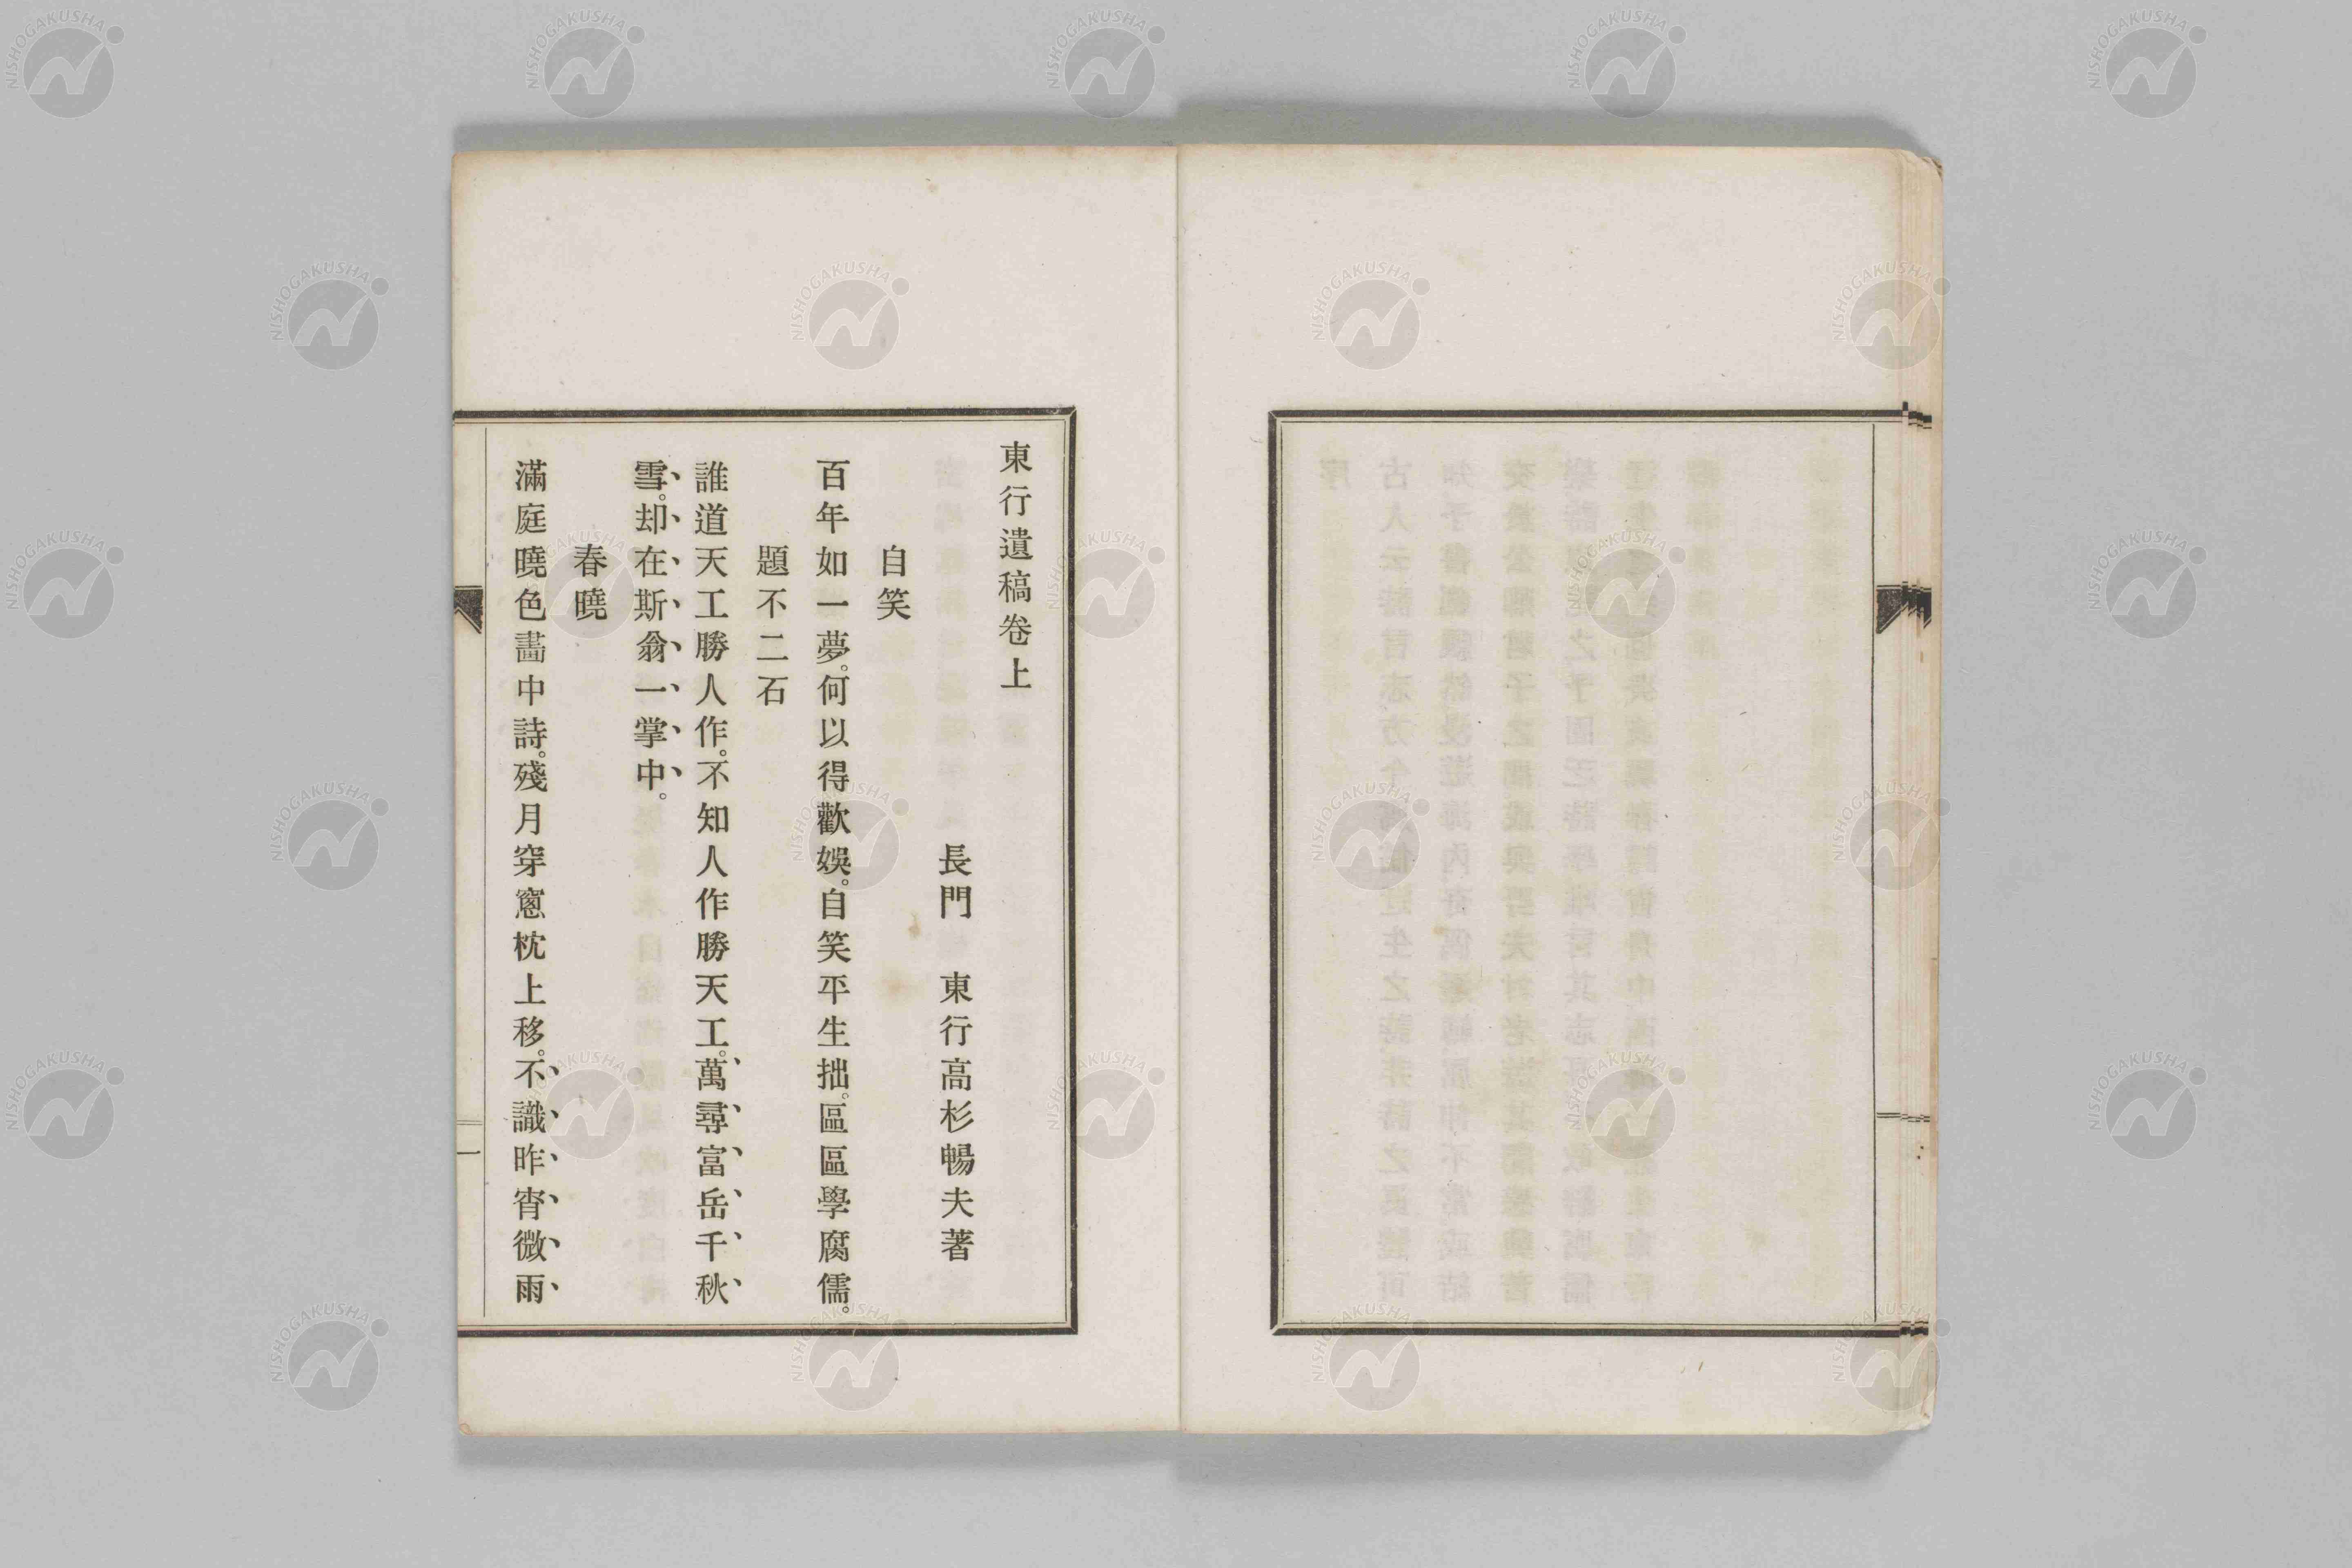 東行遺稿卷上
長門　東行高杉暢夫著
自笑
百年如一夢。何以得歡娛。自笑平生拙。區區學腐儒。
題不二石
誰道天工勝人作。不知人作勝天工。萬尋富岳千秋
雪。却在斯翁一掌中。
春曉
滿庭曉色畵中詩。殘月穿窻枕上移。不識昨宵微雨
一
NISHOGAKUSHA